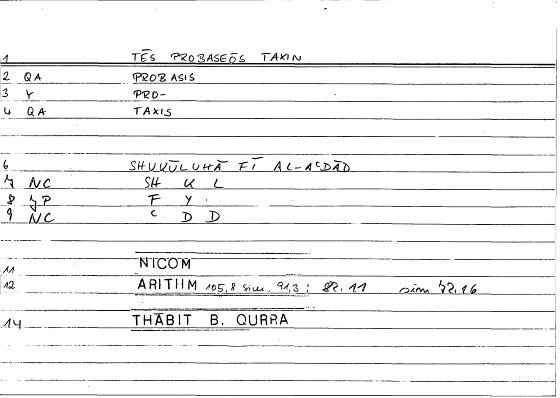 1 TĒS PROBASEŌS TAXIN
2 QA PROBASIS
3 Y PRO-
4 QA TAXIS
6 SHUKŪLUHĀ FĪ AL-AᶜDĀD
7 NC SH K L
8 JP F Y
9 NC ᶜ D D
11 NICOM
12 ARITHM 105,8 sim. 91,3 : 82.11 sim 72.16
14 THĀBIT B. QURRA